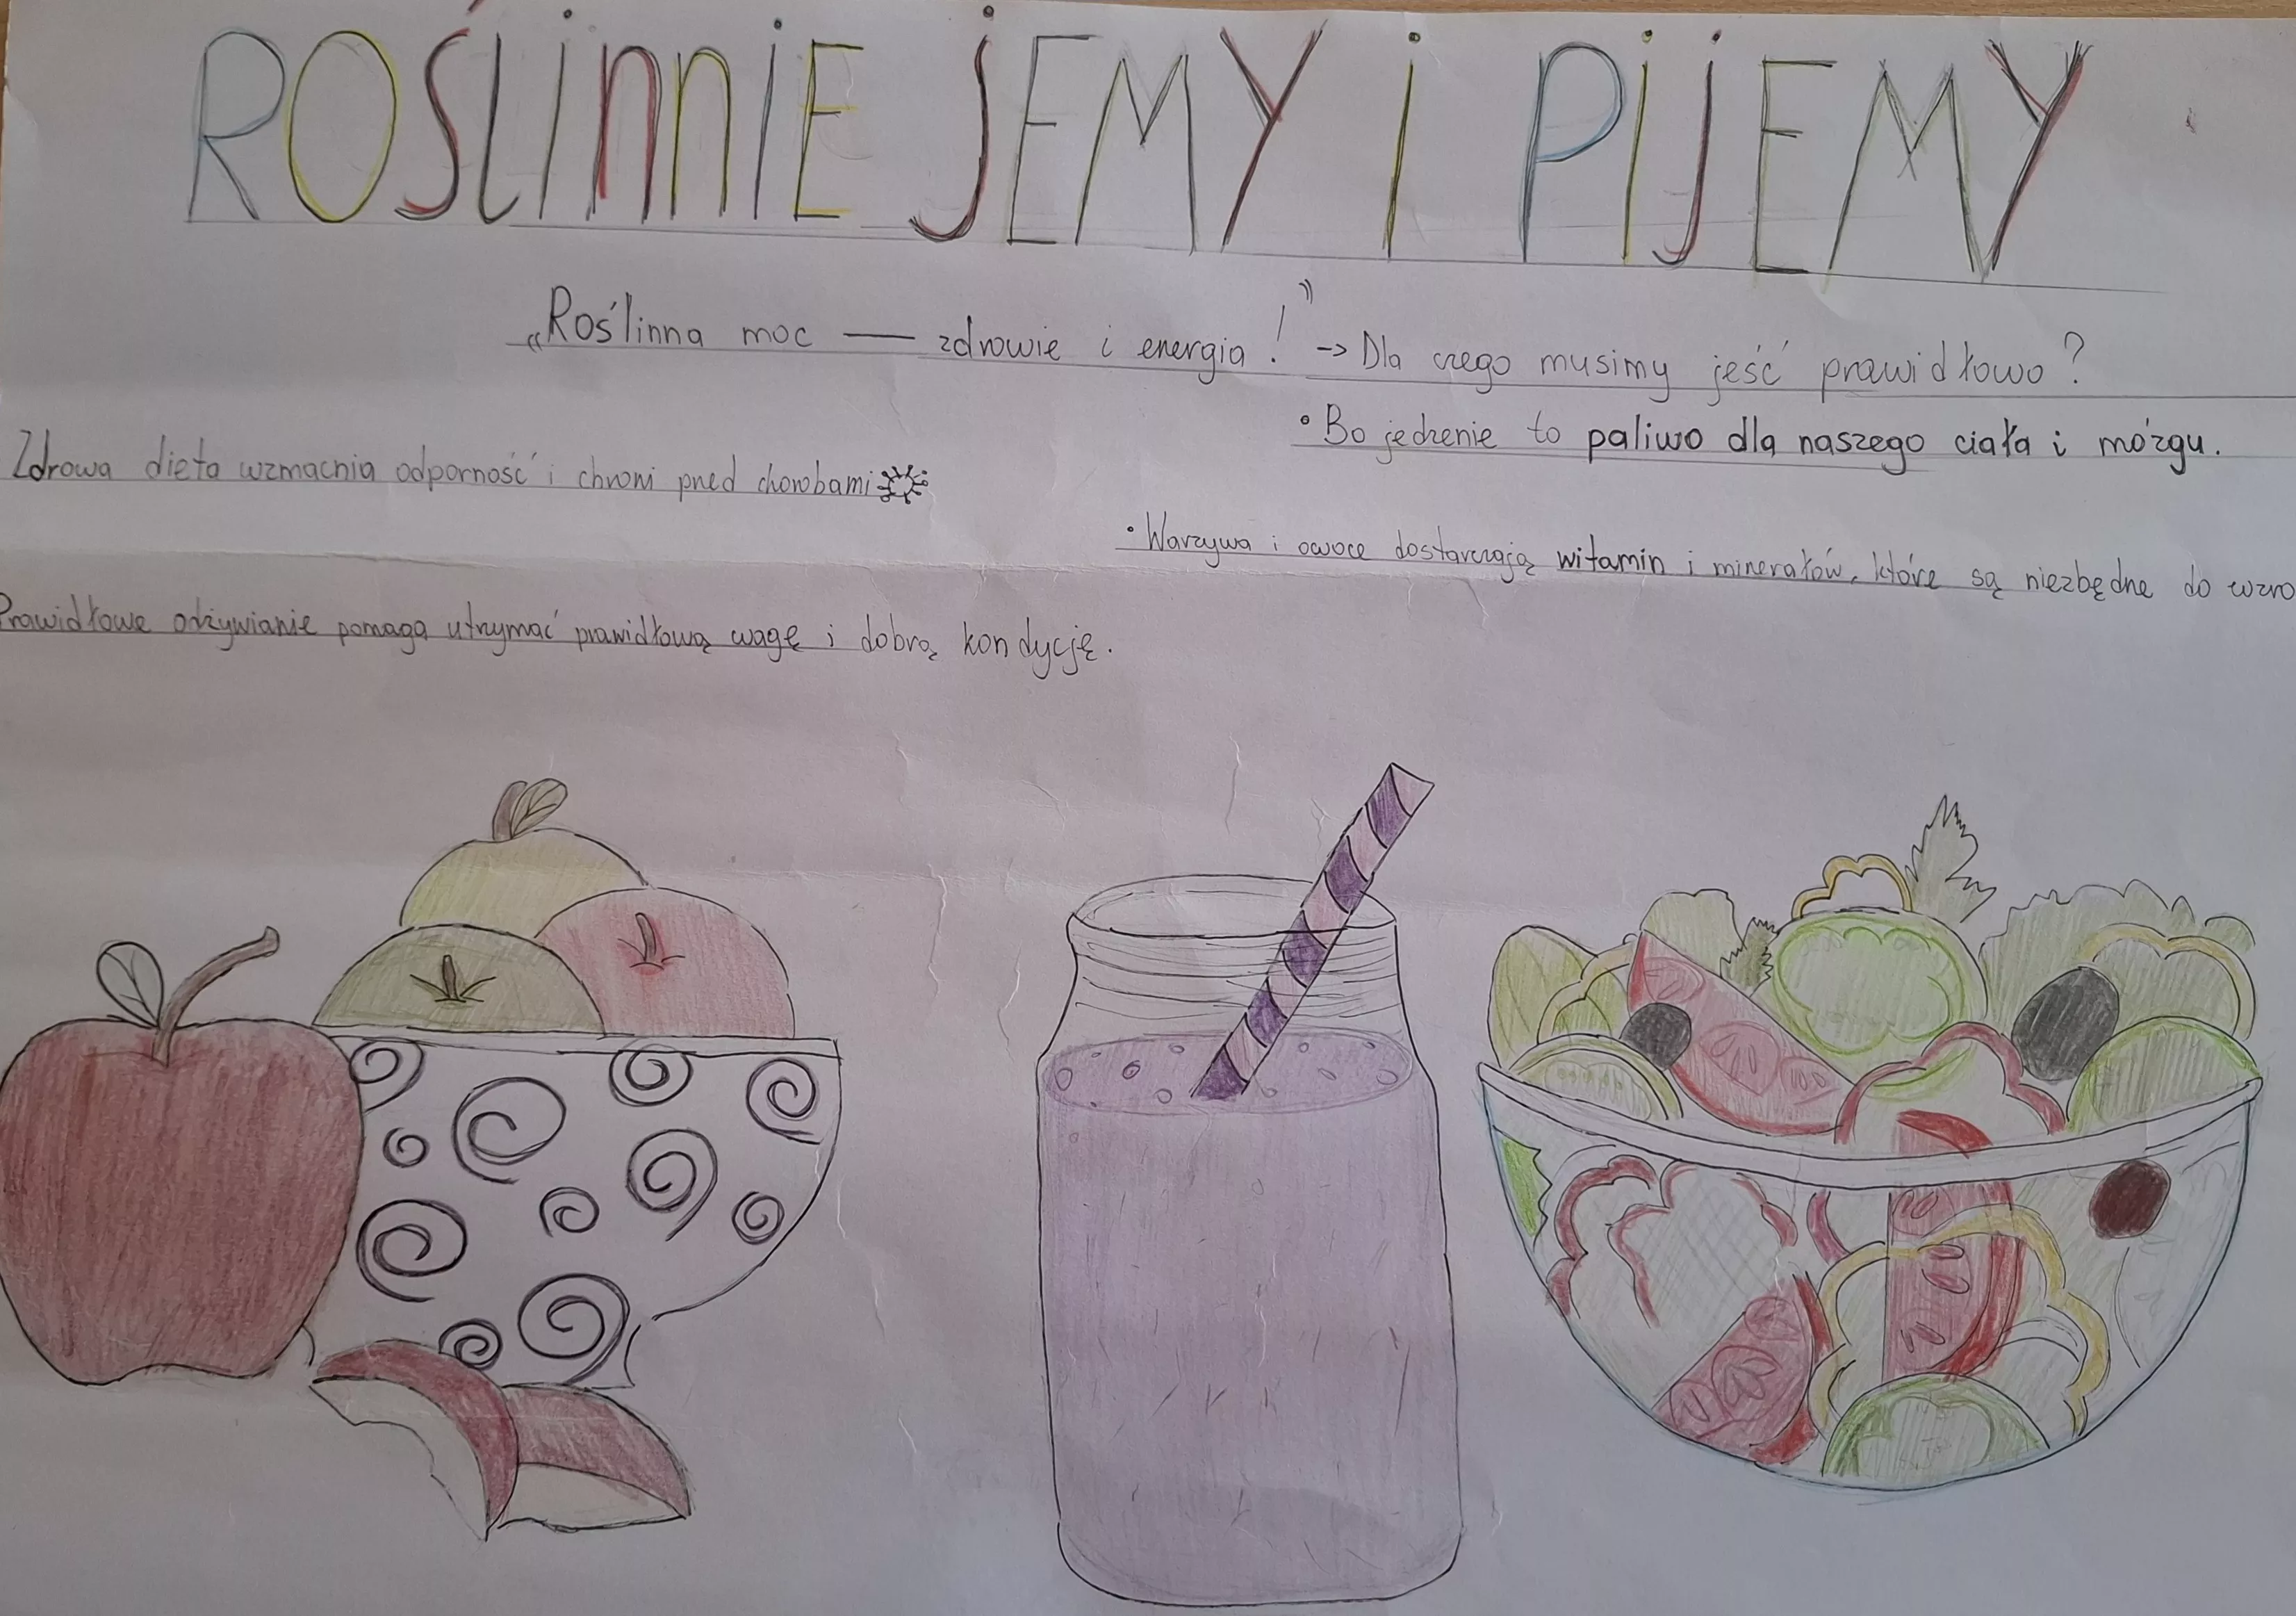 ROŚLINNIE JEMY i PIJEMY
„Roślinna moc — zdrowie i energia!” -> Dla czego musimy jeść prawidłowo?
• Bo jedzenie to paliwo dla naszego ciała i mózgu.
Zdrowa dieta wzmacnia odporność i chroni przed chorobami
• Warzywa i owoce dostarczają witamin i minerałów, które są niezbędne do wzro
Prawidłowe odżywianie pomaga utrzymać prawidłową wagę i dobrą kondycję.